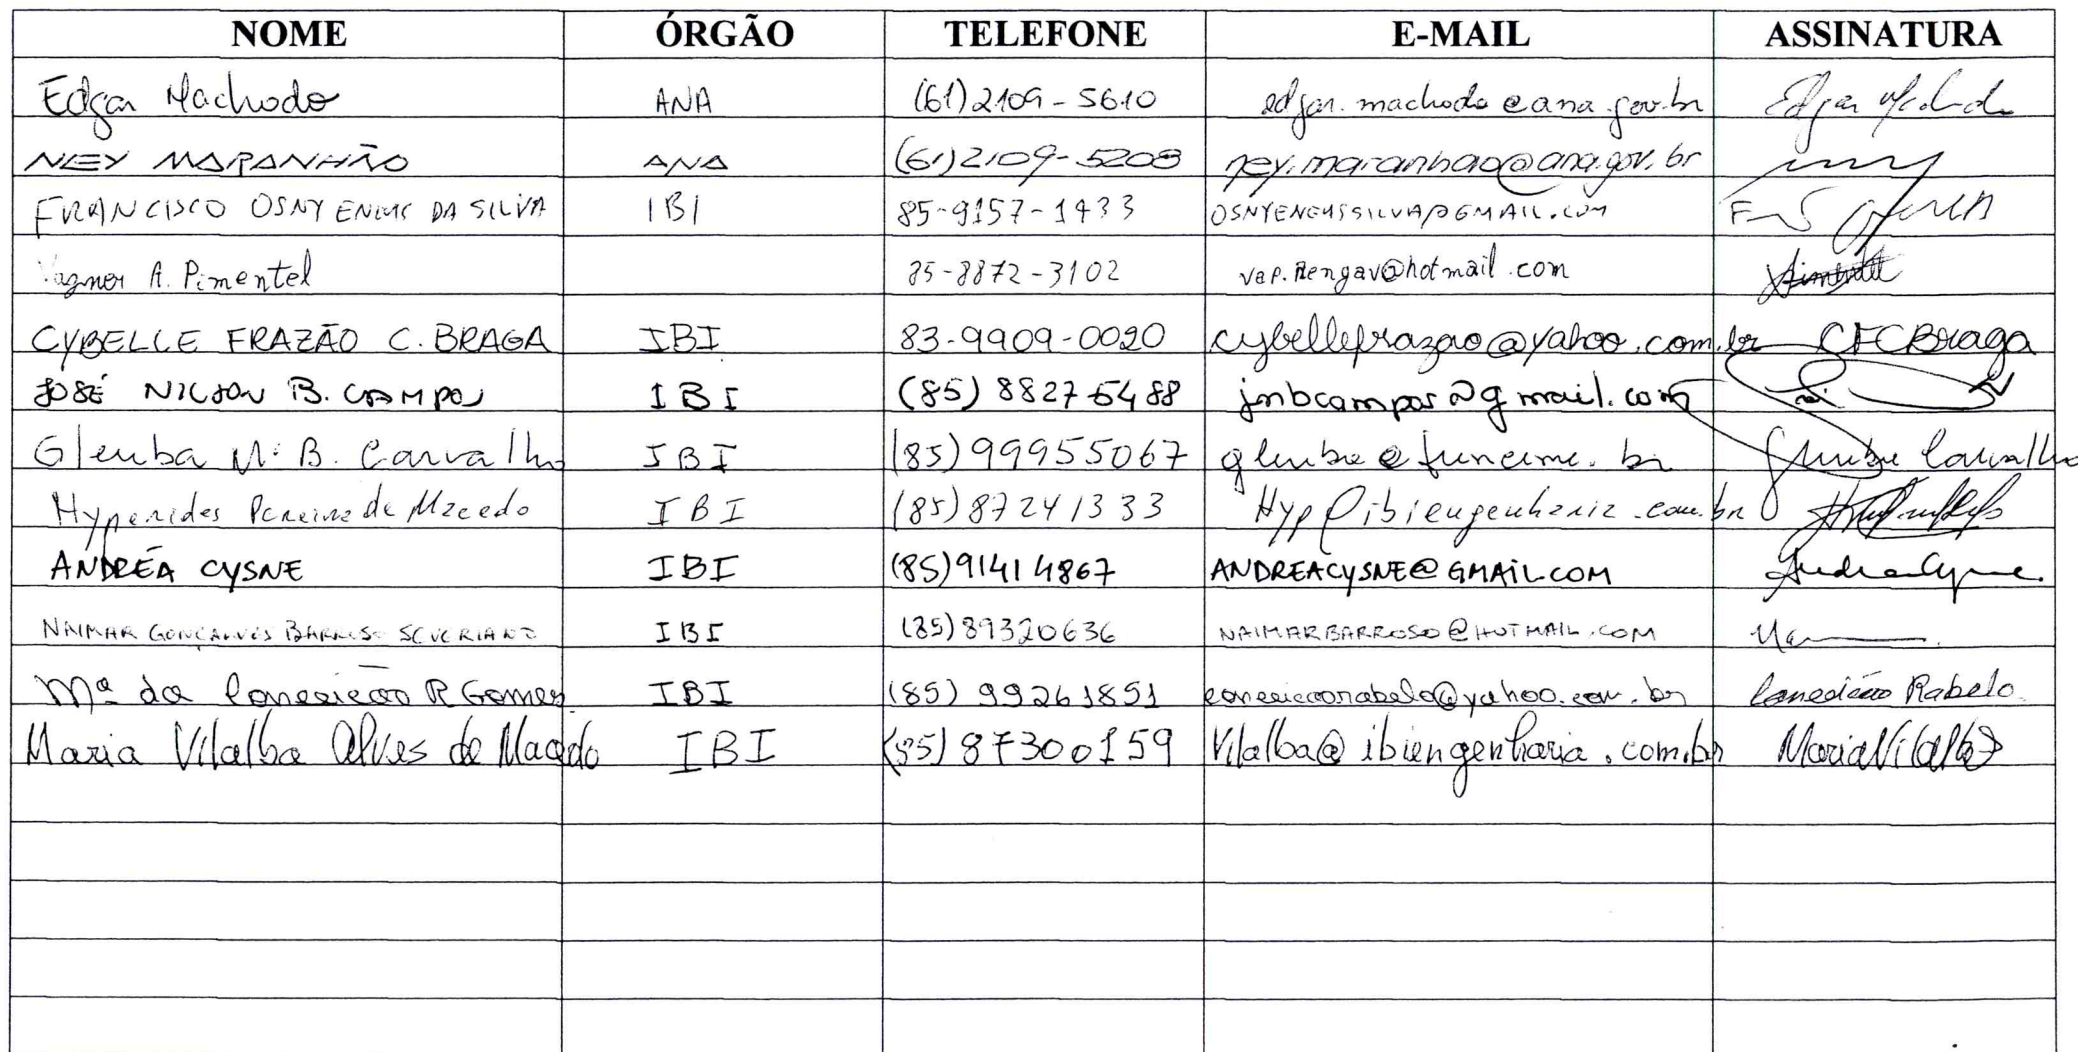 NOME ÓRGÃO TELEFONE E-MAIL ASSINATURA
Edgar Machado ANA (61)2109-5610 edgar.machado@ana.gov.br Edgar Machado
NEY MARANHÃO ANA (61)2109-5208 ney.maranhao@ana.gov.br
FRANCISCO OSNY ENEAS DA SILVA IBI 85-9157-1433 OSNYENEASSILVA@GMAIL.COM
Vagner A. Pimentel 85-8872-3102 vap.@hotmail.com Pimentel
CYBELLE FRAZÃO C. BRAGA IBI 83-9909-0020 cybellefrazao@yahoo.com.br CFCBraga
JOSÉ NILSON B. CAMPOS IBI (85) 88275488 jnbcampos@gmail.com
Gleuba Mª B. Carvalho IBI (85)99955067 gleuba@funceme.br Gleuba Carvalho
Hyperides Pereira de Macedo IBI (85)87241333 Hyp@ibiengenharia.com.br
ANDRÉA CYSNE IBI (85)91414867 ANDREACYSNE@GMAIL.COM Andrea Cysne
NAIMAR GONÇALVES BARROSO SEVERIANO IBI (85)89320636 NAIMARBARROSO@HOTMAIL.COM
Mª da Conceição R Gomes IBI (85) 99261851 conceicaorabelo@yahoo.com.br Conceição Rabelo
Maria Vilalba Alves de Macedo IBI (85) 87300159 Vilalba@ibiengenharia.com.br Maria Vilalba